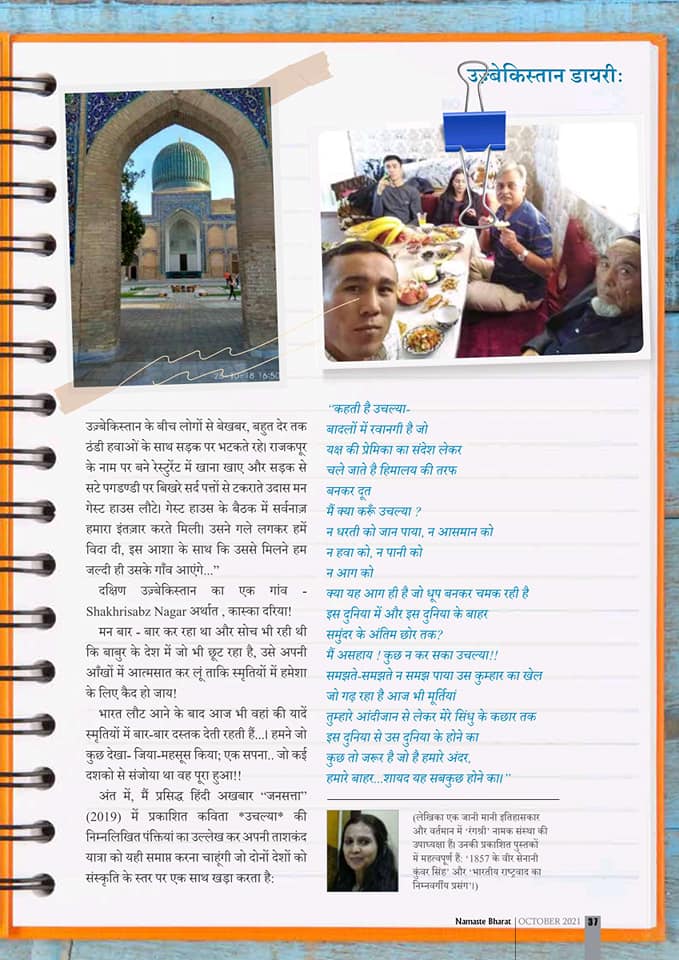 उज़्बेकिस्तान डायरी:
25-10-18 16:50
उज़्बेकिस्तान के बीच लोगों से बेखबर, बहुत देर तक
ठंडी हवाओं के साथ सड़क पर भटकते रहे। राजकपूर
के नाम पर बने रेस्टुरेंट में खाना खाए और सड़क से
सटे पगडण्डी पर बिखरे सर्द पत्तों से टकराते उदास मन
गेस्ट हाउस लौटे। गेस्ट हाउस के बैठक में सर्वनाज़
हमारा इंतज़ार करते मिली। उसने गले लगकर हमें
विदा दी, इस आशा के साथ कि उससे मिलने हम
जल्दी ही उसके गाँव आएंगे...”
दक्षिण उज़्बेकिस्तान का एक गांव -
Shakhrisabz Nagar अर्थात , कास्का दरिया!
मन बार - बार कर रहा था और सोच भी रही थी
कि बाबुर के देश में जो भी छूट रहा है, उसे अपनी
आँखों में आत्मसात कर लूं ताकि स्मृतियों में हमेशा
के लिए कैद हो जाय!
भारत लौट आने के बाद आज भी वहां की यादें
स्मृतियों में बार-बार दस्तक देती रहती हैं...। हमने जो
कुछ देखा- जिया-महसूस किया; एक सपना.. जो कई
दशको से संजोया था वह पूरा हुआ!!
अंत में, मैं प्रसिद्ध हिंदी अखबार “जनसत्ता”
(2019) में प्रकाशित कविता *उचल्या* की
निम्नलिखित पंक्तियां का उल्लेख कर अपनी ताशकंद
यात्रा को यही समाप्त करना चाहूंगी जो दोनों देशों को
संस्कृति के स्तर पर एक साथ खड़ा करता है:
“कहती है उचल्या-
बादलों में रवानगी है जो
यक्ष की प्रेमिका का संदेश लेकर
चले जाते है हिमालय की तरफ
बनकर दूत
मैं क्या करूँ उचल्या ?
न धरती को जान पाया, न आसमान को
न हवा को, न पानी को
न आग को
क्या यह आग ही है जो धूप बनकर चमक रही है
इस दुनिया में और इस दुनिया के बाहर
समुंदर के अंतिम छोर तक?
मैं असहाय ! कुछ न कर सका उचल्या!!
समझते-समझते न समझ पाया उस कुम्हार का खेल
जो गढ़ रहा है आज भी मूर्तियां
तुम्हारे आंदीजान से लेकर मेरे सिंधु के कछार तक
इस दुनिया से उस दुनिया के होने का
कुछ तो जरूर है जो है हमारे अंदर,
हमारे बाहर...शायद यह सबकुछ होने का।”
(लेखिका एक जानी मानी इतिहासकार
और वर्तमान में ‘रंगश्री’ नामक संस्था की
उपाध्यक्षा हैं। उनकी प्रकाशित पुस्तकों
में महत्वपूर्ण हैं: ‘1857 के वीर सेनानी
कुंवर सिंह’ और ‘भारतीय राष्ट्रवाद का
निम्नवर्गीय प्रसंग’।)
Namaste Bharat | OCTOBER 2021 37